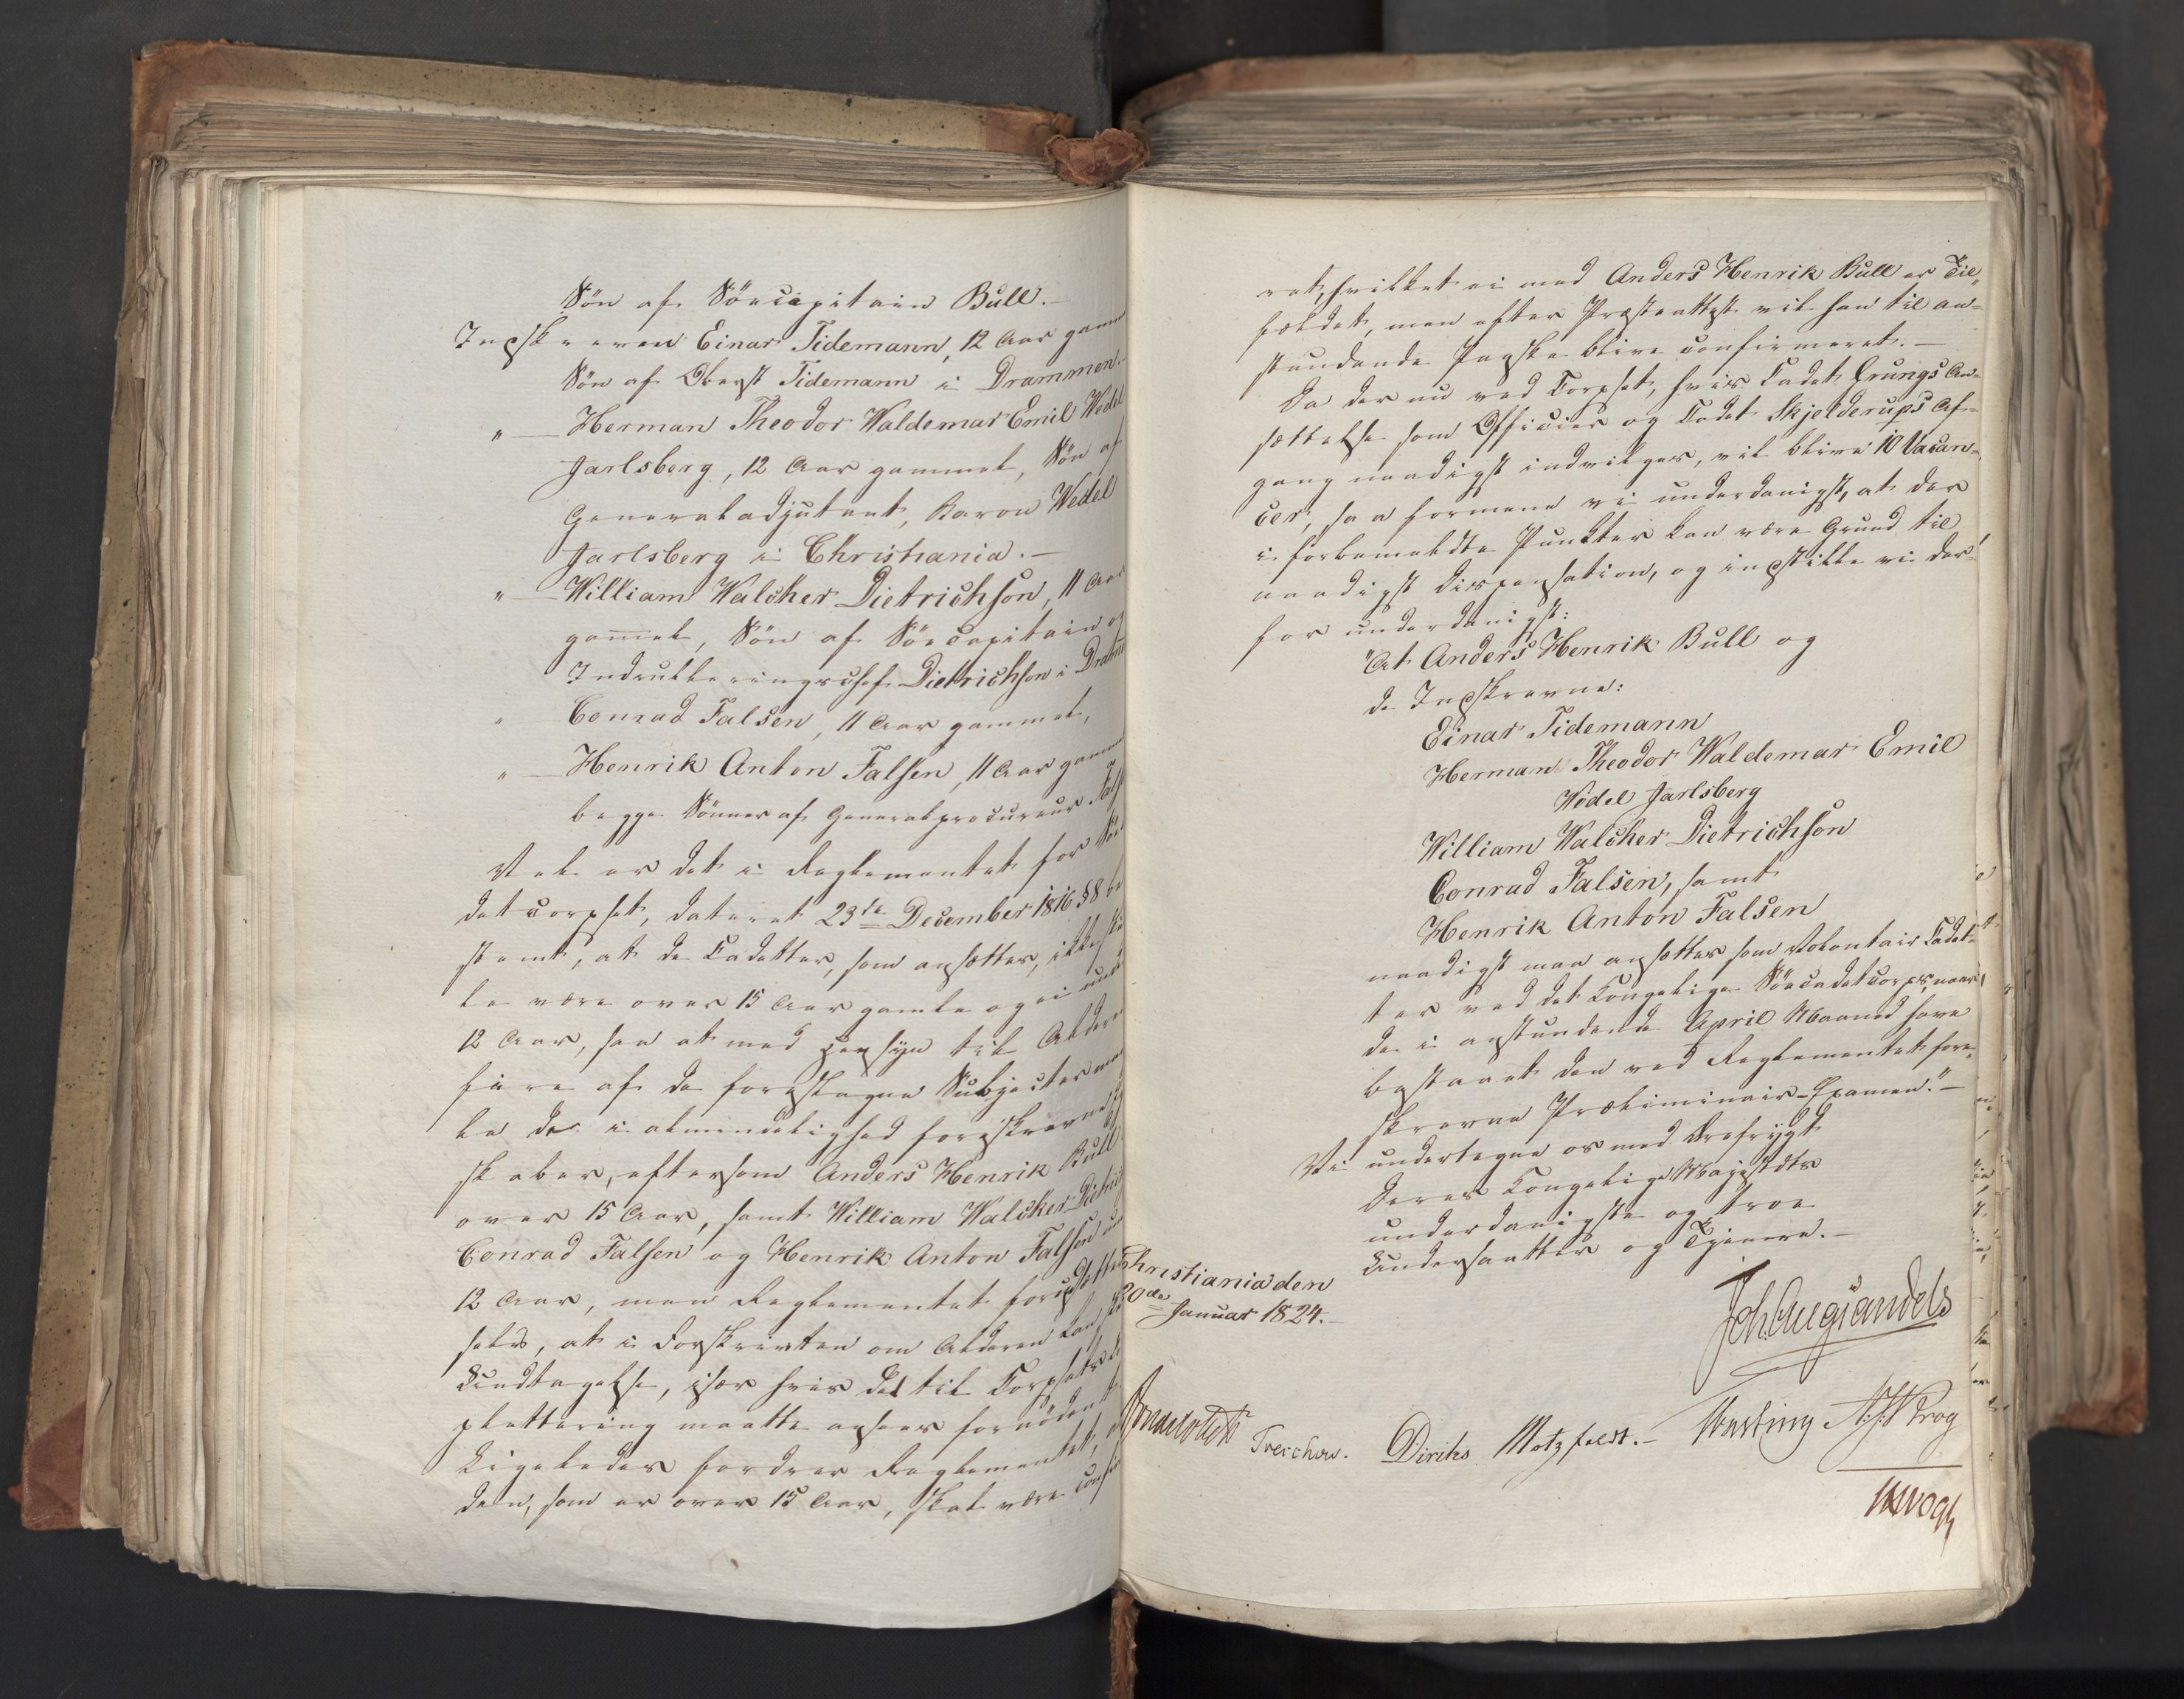 Søn af Søecapitain Bull.-
Indskrevne Einar Tidemann, 12 Aar gamm
Søn af Oberst Tidemann i Drammen.-
" — Herman Theodor Waldemar Emil Wedel
Jarlsberg, 12 Aar gammel, Søn af
Generaladjutant, Baron Wedel
Jarlsberg i Christiania.-
" — William Walcher Dietrichson, 11 Aar
gammel, Søn af Søecapitain og
Indrulleringschef Dietrichson i Dramm
" Conrad Falsen, 11 Aar gammel,
" — Henrik Anton Falsen, 11 Aar gamm
begge Sønner af Generalprocureur Fals
Vel er det i Reglementet for Søe
detcorpset, dateret 23de December 1816 § 8 be
stemt, at de Cadetter, som ansættes, ikke skul
le være over 15 Aar gamle og ei under
12 Aar, saa at med Hensyn til Alderen
fire af de foreslagne Subjecter man
le de i Almindelighed foreskrevne Eg
skaber, eftersom Anders Henrik Bull
over 15 Aar, samt William Walcher Dietric
Conrad Falsen og Henrik Anton Falsen un
12 Aar, men Reglementet forudsætter
selv, at i Forskrivten om Alderen kan skee
Undtagelse, især hvis det til Corpsets
plettering maatte ansees fornødent.
Ligeledes fordrer Reglementet, at
den, som er over 15 Aar, skal være confir
ret, hvilket ei med Anders Henrik Bull er Til,,
fældet, men efter Præsteattest vil han til an=
stundende Paaske blive confirmeret.-
Da der nu ved Corpset, hvis Cadet Grungs An=
sættelse som Officier og Cadet Skjelderups Af=
gang naadigst indvilges, vil blive 10 Vacan=
cer, saa formene vi underdanigst, at der
i forbemeldte Punkter kan være Grund til
naadigst Dispensation, og indstille vi der=
for underdanigst:
"At Anders Henrik Bull og
de Indskrevne:
Einar Tidemann
Herman Theodor Waldemar Emil
Wedel Jarlsberg
William Walcher Dietrichson
Conrad Falsen, samt
Henrik Anton Falsen
naadigst maa ansættes som Volontair Cadet=
ter ved det Kongelige Søecadetcorps, naar
de i anstundende April Maaned have
bestaaet den ved Reglementet fore,,
skrevne Præliminair-Examen."-
Vi undertegne os med Ærefrygt
Deres Kongelige Majestæts
underdanigste og troe
Undersaatter og Tjenere.-
Christiania den
20de Januar 1824.-
Joh. Aug. Sandels
Sommerhielm Treschow. Diriks Motzfeldt.- Fasting A:J: Krog